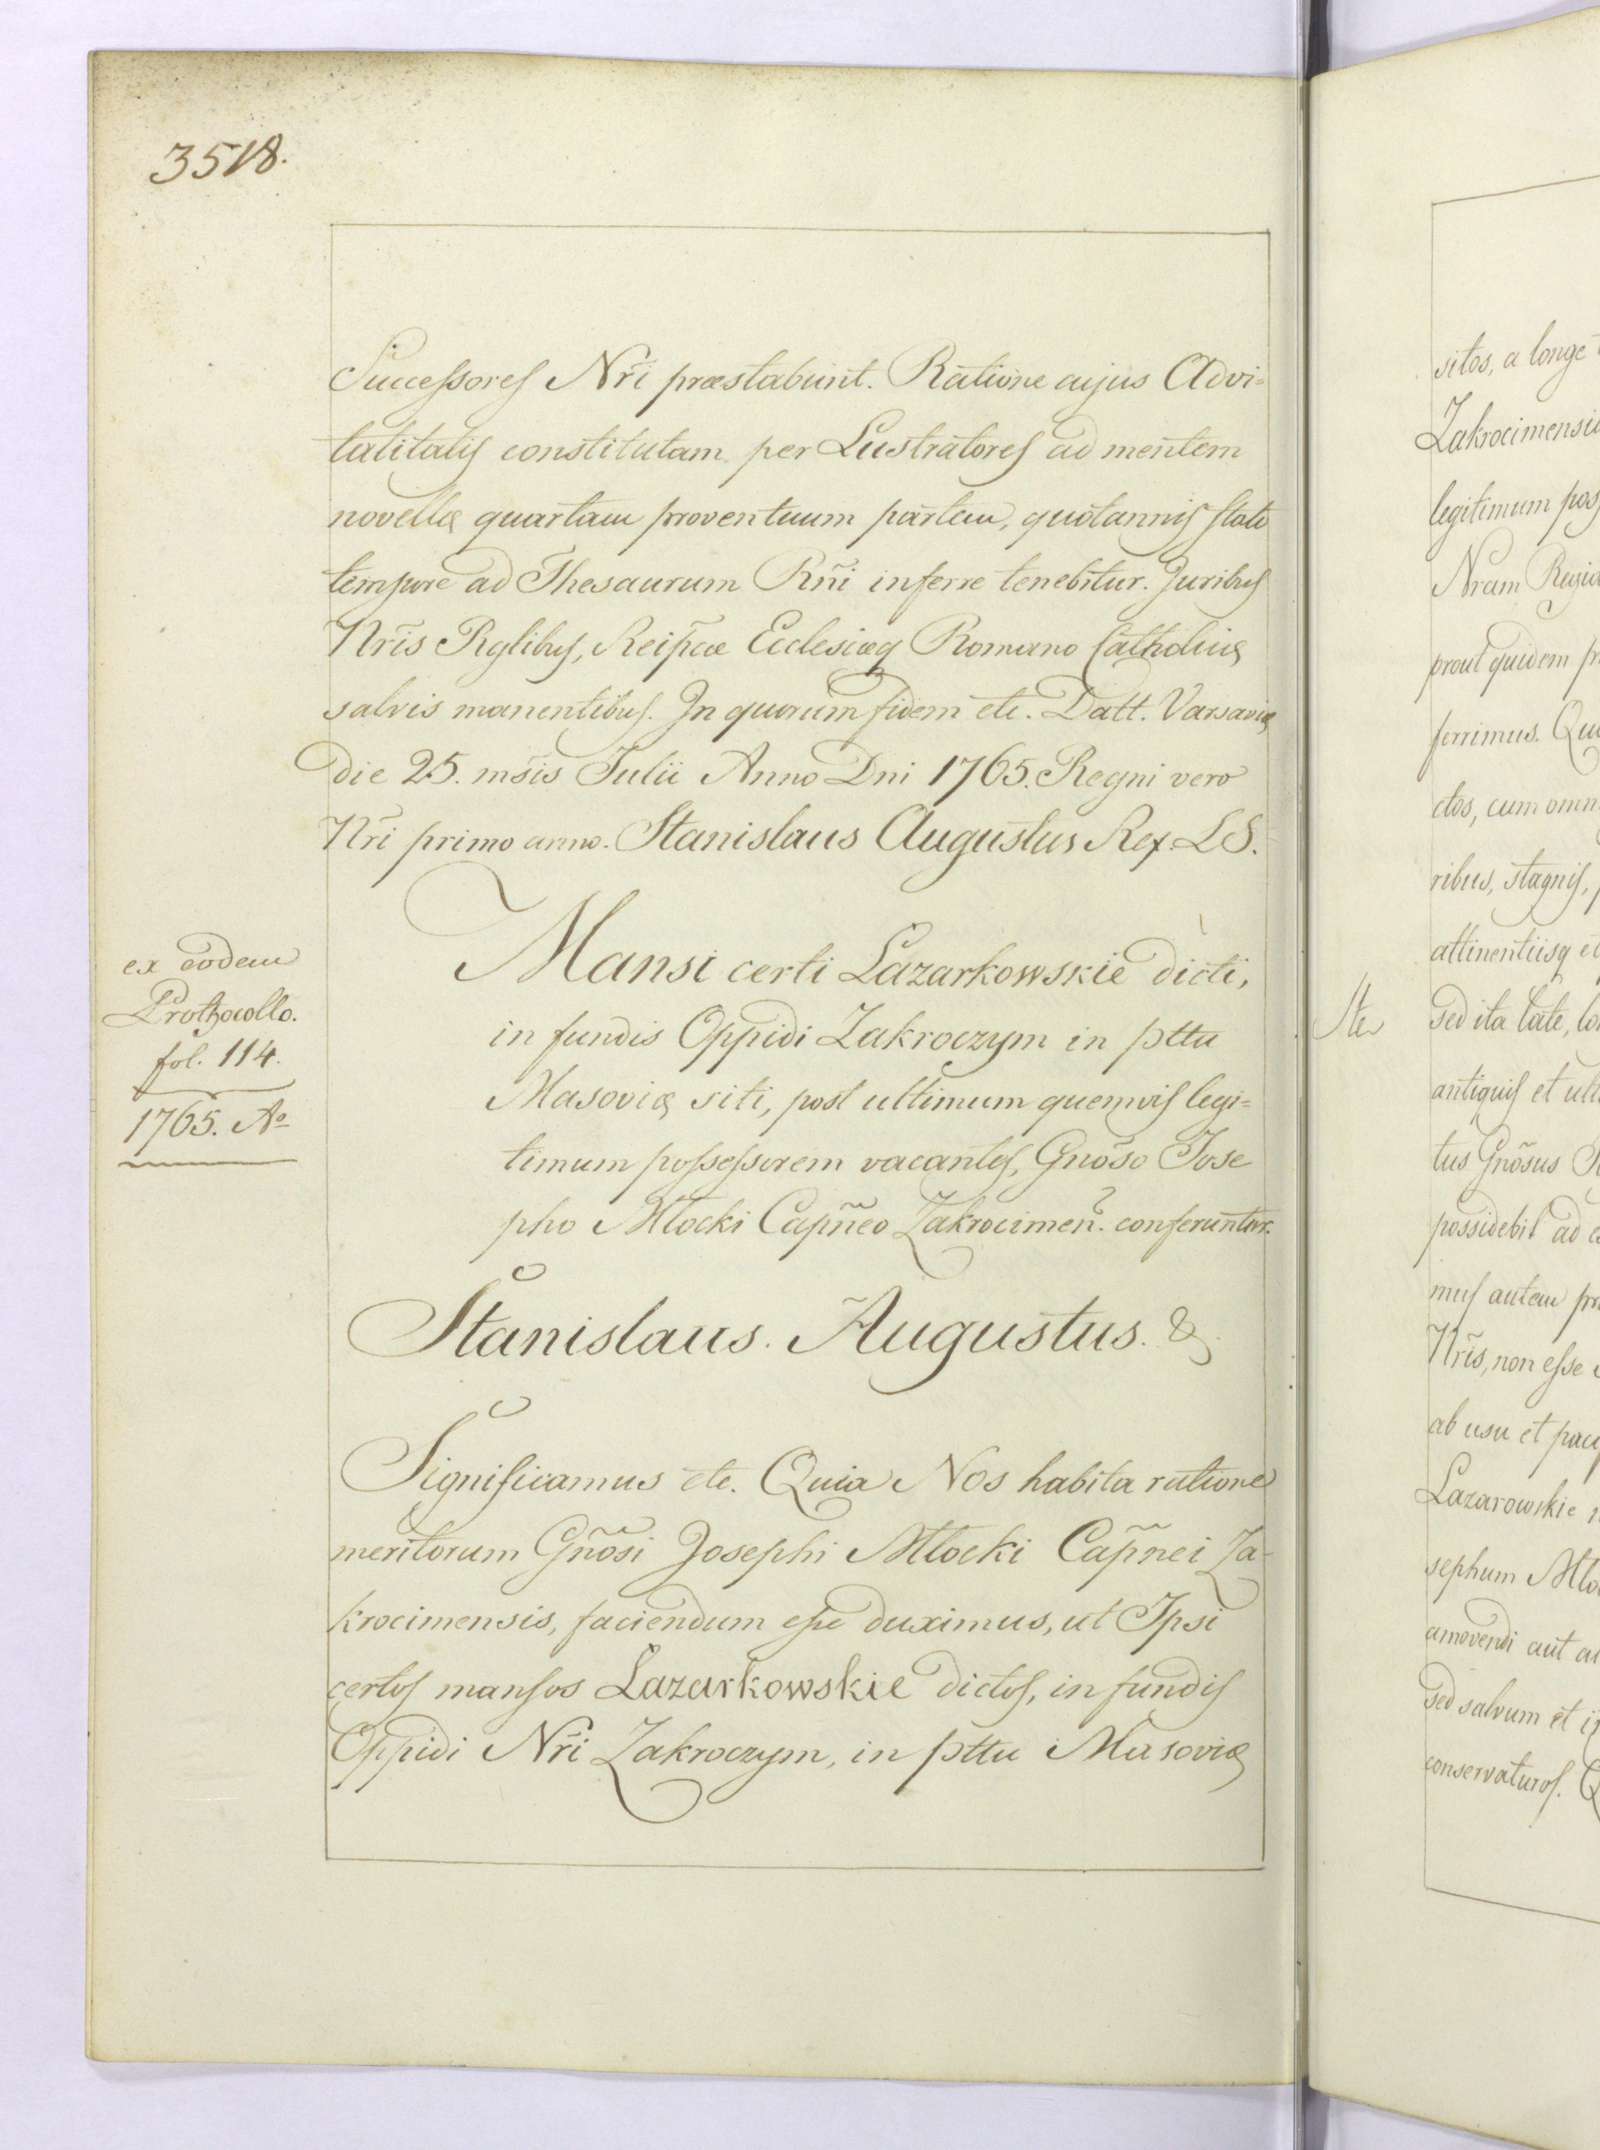 3518.
Successores Nr̃i præstabunt. Ratione cujus Advi=
talitatis constitutam per Lustratores ad mentem
novellæ quartam proventuum partem, quotannis stato
tempore ad Thesaurum Rñi inferre tenebitur. Juribus
Nr̃is Rglibus, Reip̃cæ Ecclesiæq Romano Catholicæ
salvis manentibus. In quorum fidem etc. Datt. Varsaviæ
die 25. m̃sis Julii Anno Dni 1765. Regni vero
Nr̃i primo anno. Stanislaus Augustus Rex. LS.
ex eodem
Prothocollo.
fol. 114.
1765. Ao
Mansi certi Lazarkowskie dicti,
in fundis Oppidi Zakroczym in pttu
Masoviæ siti, post ultimum quemvis legi=
timum possessorem vacantes, Gnõso Jose
pho Młocki Capñeo Zakrocimen. conferuntur.
Stanislaus. Augustus. &.
Significamus etc. Quia Nos habita ratione
meritorum Gnõsi Josephi Młocki Capñei Za-
krocimensis, faciendum esse duximus, ut Ipsi
certos mansos Lazarkowskie dictos, in fundis
Oppidi Nr̃i Zakroczym, in pttu Masoviæ
sitos, a longe
Zakrocimensi
legitimum pos
Nram Regia
prout quidem pr
ferrimus. Qu
ctos, cum omn
ribus, stagnis,
attinentiisq et
sed ita late, lo
antiquis et ult
tus Gnõsus
possidebit ad
mus autem pr
Nr̃is, non esse
ab usu et paci
Lazarowskie
sephum Mło
amovendi aut a
sed salvum et i
conservaturos. Q